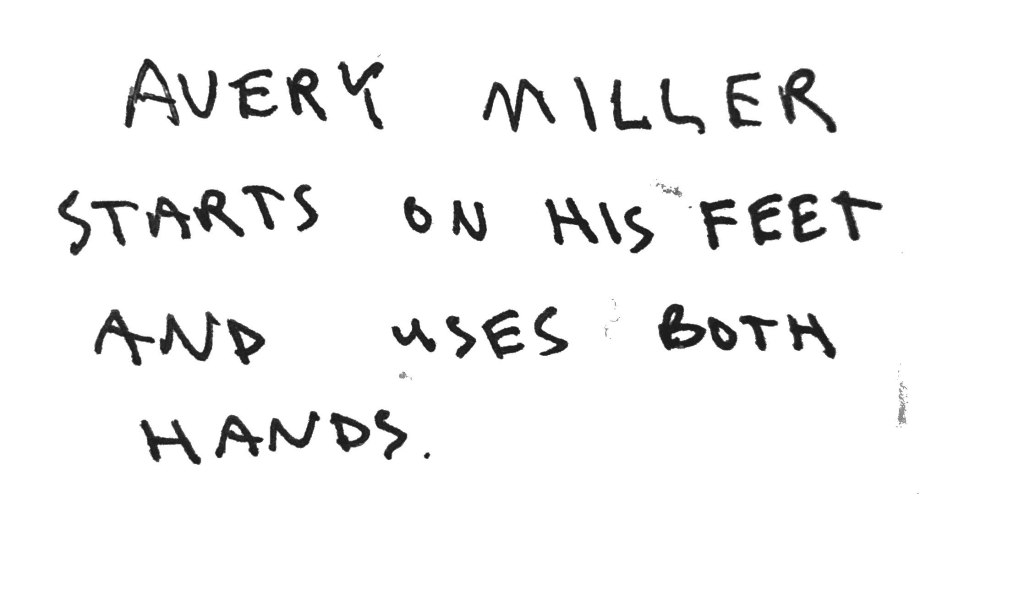 AVERY MILLER
STARTS ON HIS FEET
AND USES BOTH
HANDS.